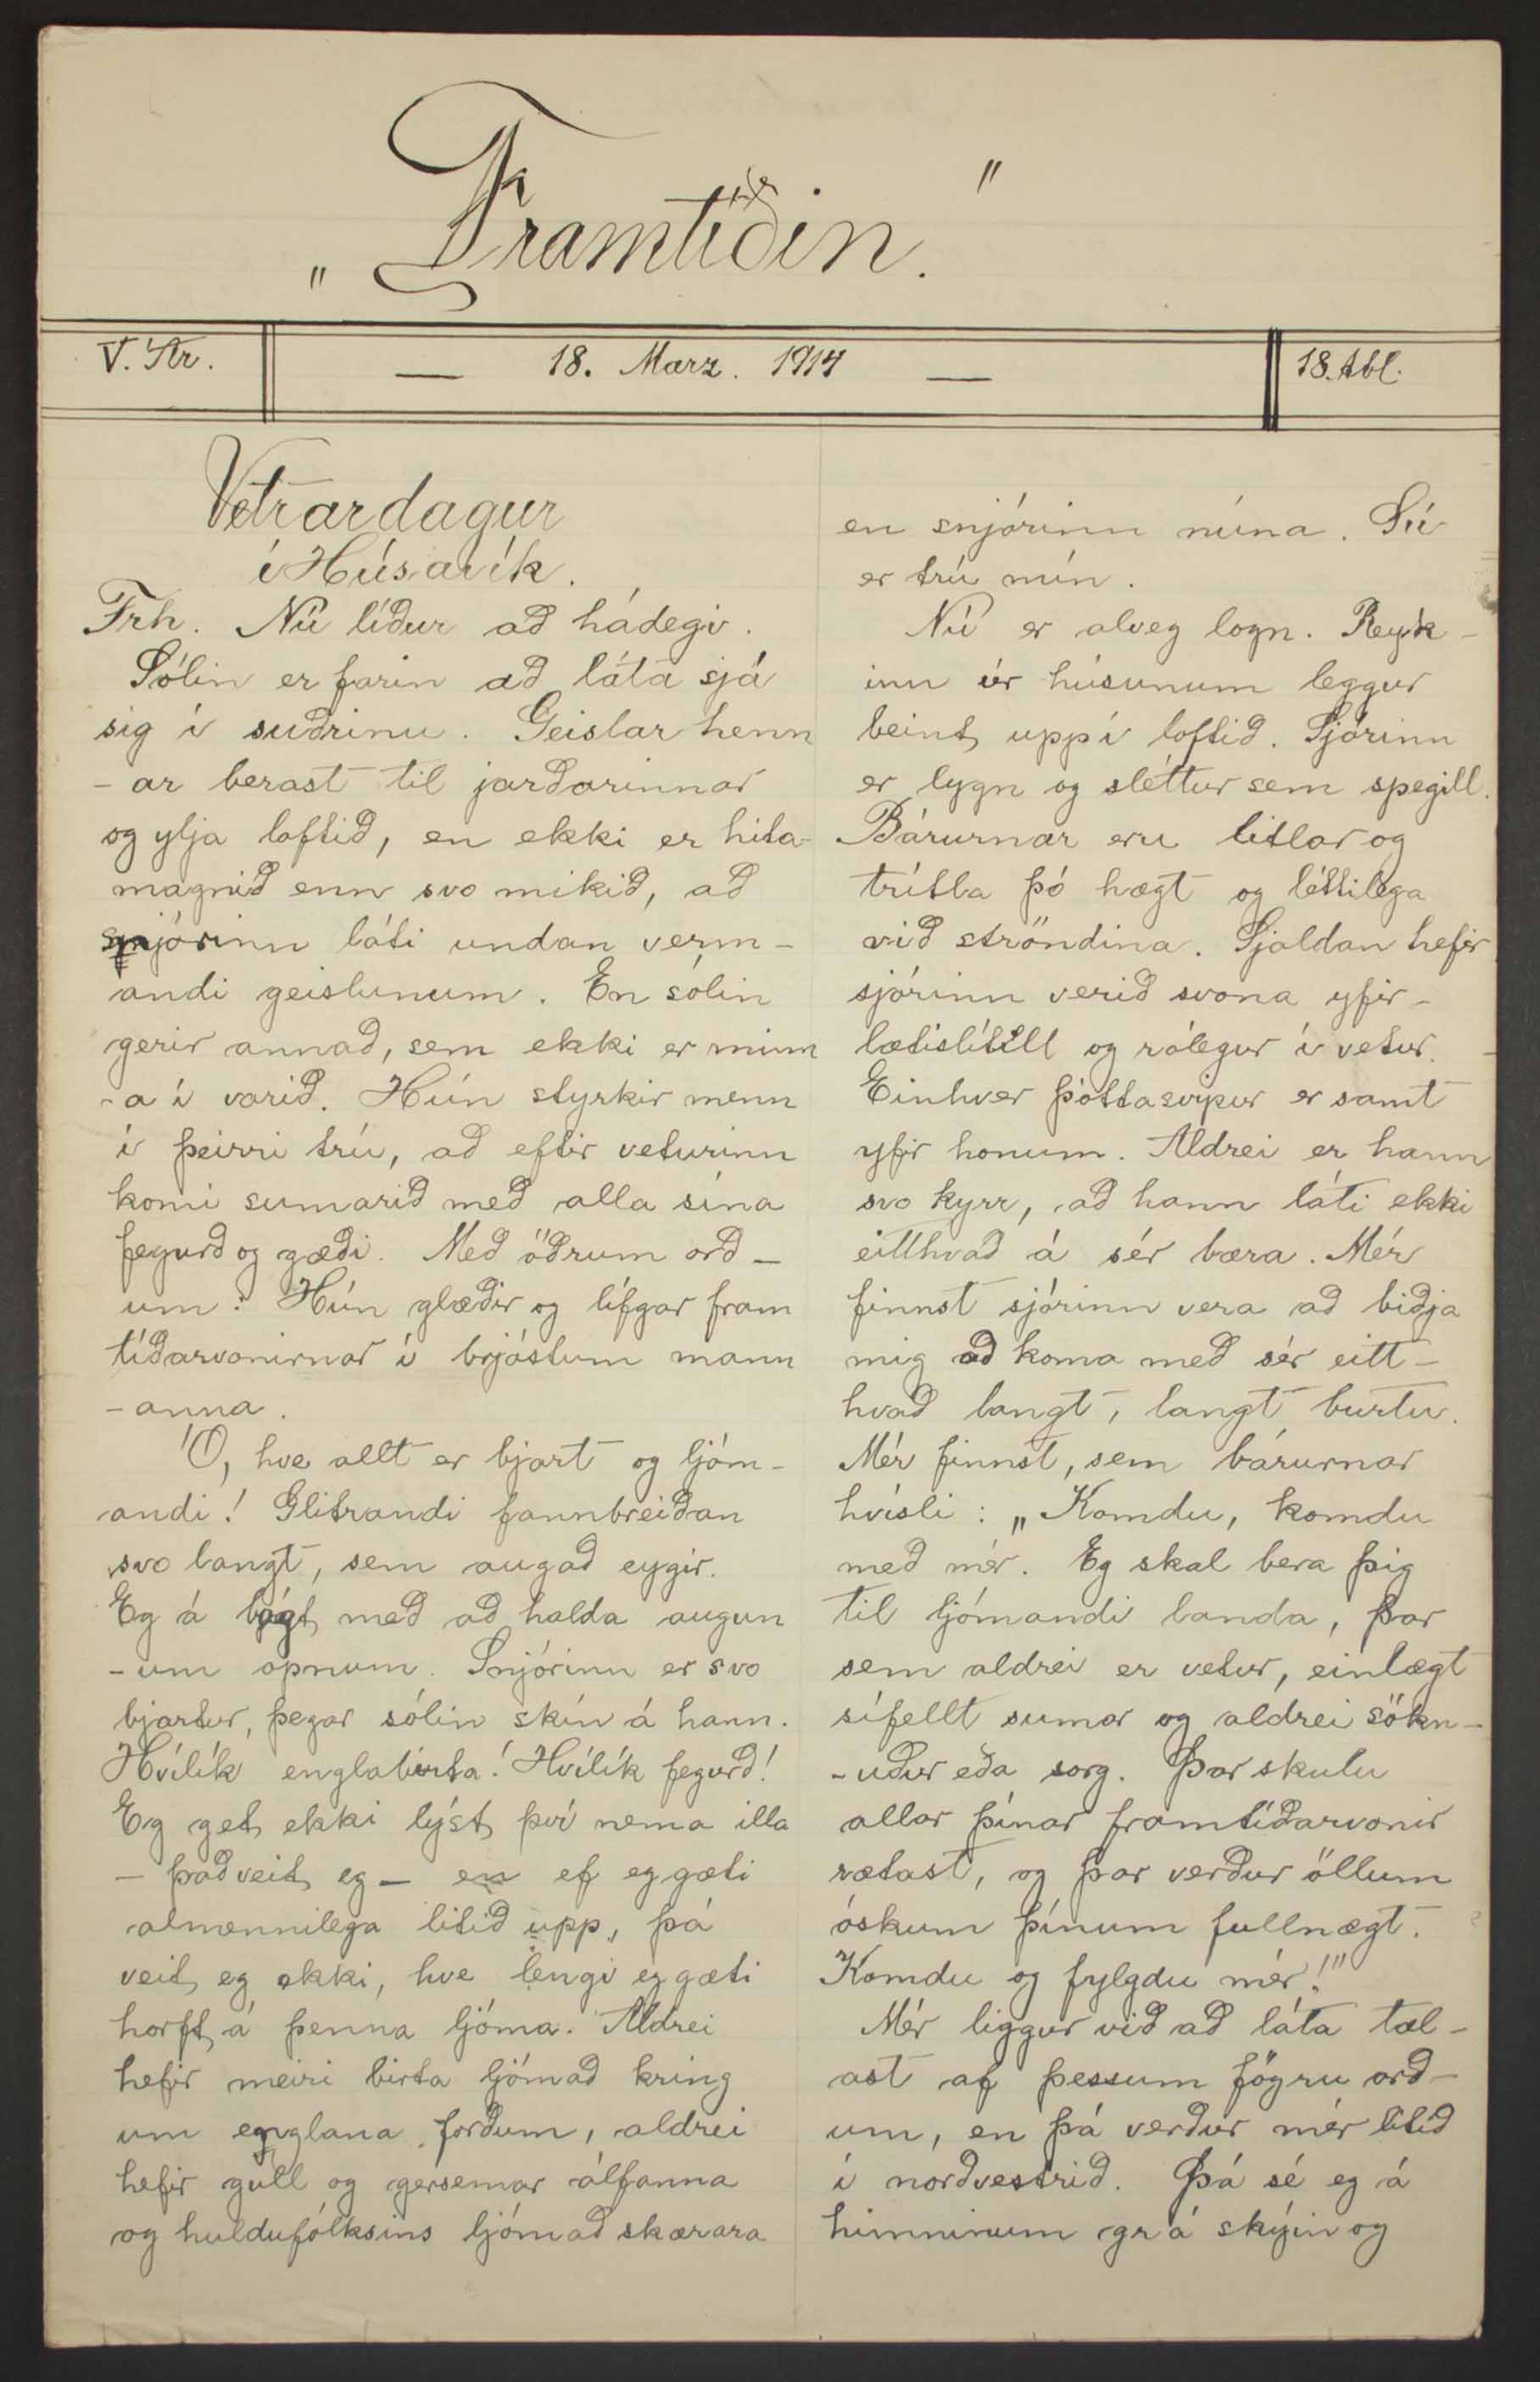 „Framtíðin."
V. Ár.
— 18. Marz. 1914 —
18. tbl.
Vetrardagur
í Húsavík.
Frh. Nú líður að hádegi.
Sólin er farin að láta sjá
sig í suðrinu. Geislar henn
- ar berast til jarðarinnar
og ylja loftið, en ekki er hita-
magnið enn svo mikið, að
snjórinn láti undan verm-
andi geislunum. En sólin
gerir annað, sem ekki er minn
-a í varið. Hún styrkir menn
í þeirri trú, að eftir veturinn
komi sumarið með alla sína
fegurð og gæði. Með öðrum orð-
um: Hún glæðir og lífgar fram
tíðarvonirnar í brjóstum mann
- anna.
Ó, hve allt er bjart og ljóm-
andi! Glitrandi fannbreiðan
svo langt, sem augað eygir.
Eg á bágt með að halda augun
- um opnum. Snjórinn er svo
bjartur, þegar sólin skín á hann.
Hvílík englabirta! Hvílík fegurð!
Eg get ekki lýst því nema illa
- það veit eg - en ef eg gæti
almennilega litið upp, þá
veit eg ekki, hve lengi eg gæti
horft á þenna ljóma. Aldrei
hefir meiri birta ljómað kring
um englana forðum, aldrei
hefir gull og gersemar álfanna
og huldufólksins ljómað skærara
en snjórinn núna. Sú
er trú mín.
Nú er alveg logn. Reyk-
inn úr húsunum leggur
beint upp í loftið. Sjórinn
er lygn og sléttur sem spegill.
Bárurnar eru litlar og
trítla þó hægt og léttilega
við ströndina. Sjaldan hefir
sjórinn verið svona yfir-
lætislítill og rólegur í vetur.
Einhver þóttasvipur er samt
yfir honum. Aldrei er hann
svo kyrr, að hann láti ekki
eitthvað á sér bæra. Mér
finnst sjórinn vera að biðja
mig að koma með sér eitt-
hvað langt, langt burtu.
Mér finnst, sem bárurnar
hvísli: „Komdu, komdu
með mér. Eg skal bera þig
til ljómandi landa, þar
sem aldrei er vetur, einlægt
sífellt sumar og aldrei sökn-
-uður eða sorg. Þar skulu
allar þínar framtíðarvonir
rætast, og þar verður öllum
óskum þínum fullnægt.
Komdu og fylgdu mér!"
Mér liggur við að láta tæl-
ast af þessum fögru orð-
um, en þá verður mér litið
í norðvestrið. Þá sé eg á
himninum grá skýin og